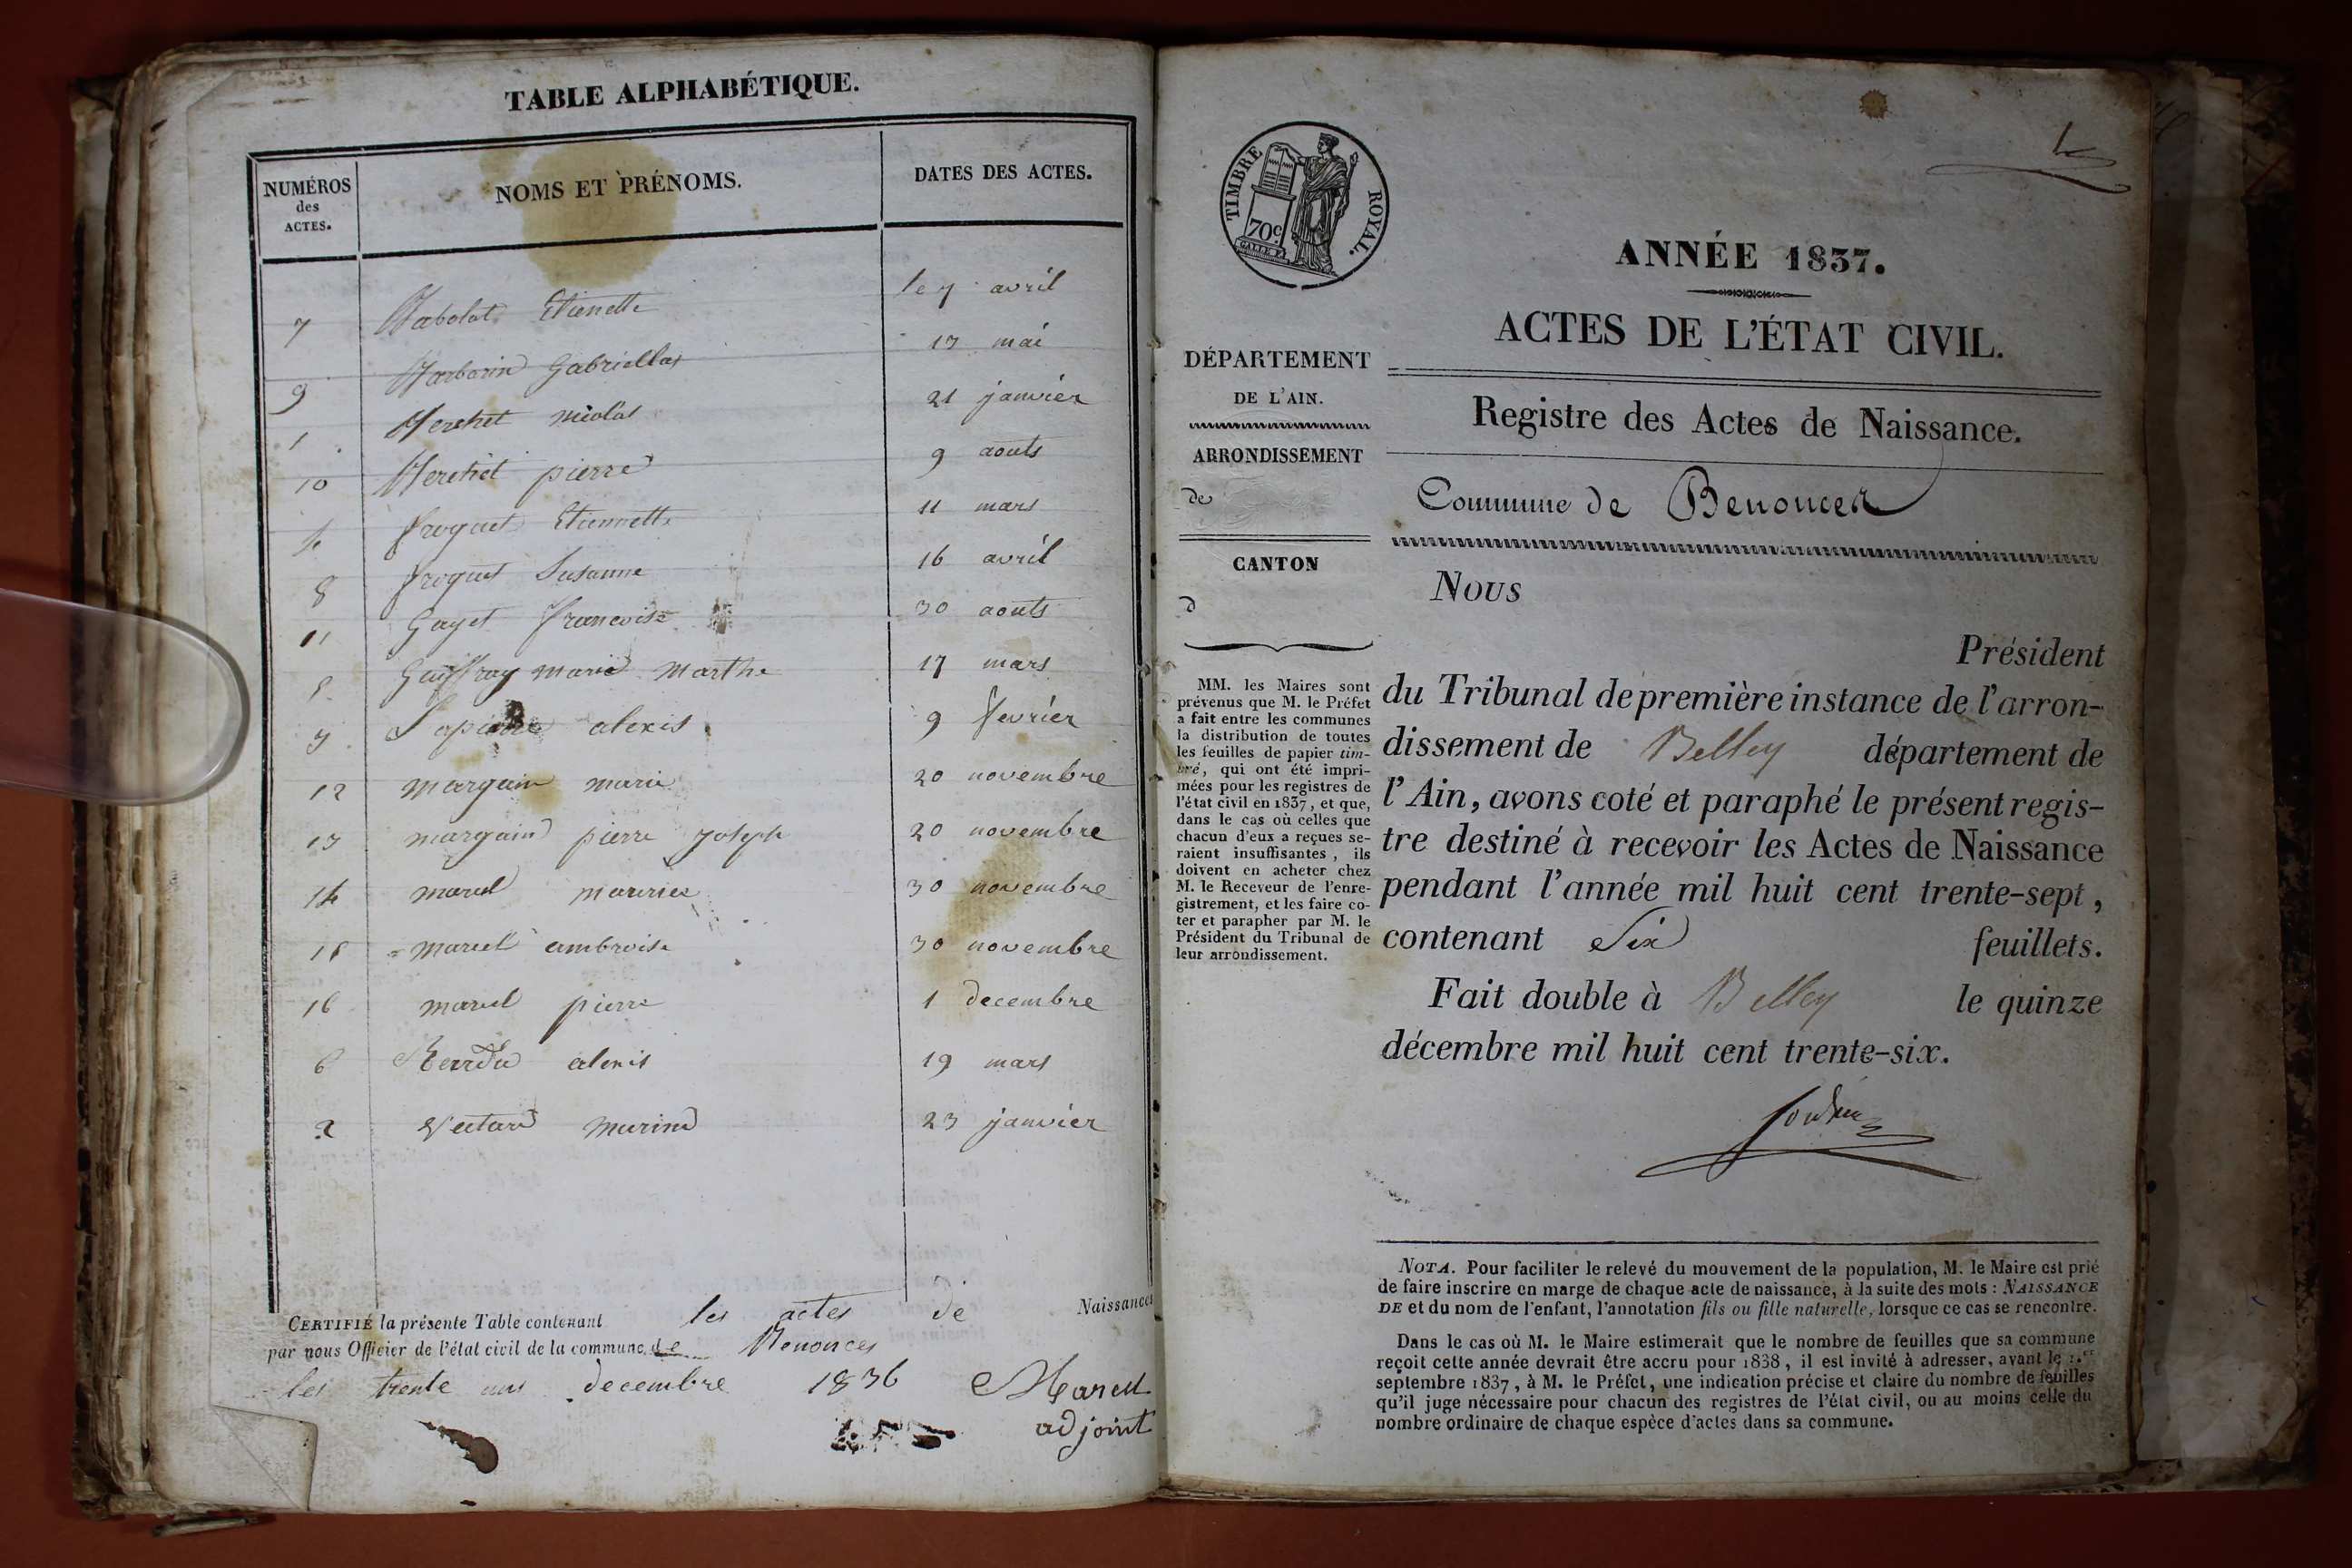 TABLE ALPHABÉTIQUE.
NUMÉROS
des
ACTES.
NOMS ET PRÉNOMS.
DATES DES ACTES.
7 Babolat Etienette le 7 avril
9 Barbarin Gabriellas 13 mai
1 Berchet nicolas 21 janvier
10 Berchet pierre 9 aouts
4 froquet Etiennette 11 mars
8 froquet Susanne 16 avril
11 Gayet francoise 30 aouts
5 Guiffray marie Marthe 17 mars
3 Lapierre alexis 9 fevrier
12 margain marie 20 novembre
13 margain pierre joseph 20 novembre
14 marcel 30 novembre
15 marcel ambroise 30 novembre
16 marcel pierre 1 decembre
6 alexis 19 mars
2 23 janvier
CERTIFIÉ la présente Table contenant les actes de Naissances
par nous Officier de l'état civil de la commune de Benonces
les trente uns decembre 1836 Marcel
adjoint
TIMBRE ROYAL.
70c
ANNÉE 1837.
ACTES DE L'ÉTAT CIVIL.
Registre des Actes de Naissance.
Commune de Benonces
DÉPARTEMENT
DE L'AIN.
ARRONDISSEMENT
de
CANTON
d
MM. les Maires sont
prévenus que M. le Préfet
a fait entre les communes
la distribution de toutes
les feuilles de papier tim-
bré, qui ont été impri-
mées pour les registres de
l'état civil en 1837, et que,
dans le cas où celles que
chacun d'eux a reçues se-
raient insuffisantes, ils
doivent en acheter chez
M. le Receveur de l'enre-
gistrement, et les faire co-
ter et parapher par M. le
Président du Tribunal de
leur arrondissement.
Nous
Président
du Tribunal de première instance de l'arron-
dissement de Belley département de
l'Ain, avons coté et paraphé le présent regis-
tre destiné à recevoir les Actes de Naissance
pendant l'année mil huit cent trente-sept,
contenant Six feuillets.
Fait double à Belley le quinze
décembre mil huit cent trente-six.
NOTA. Pour faciliter le relevé du mouvement de la population, M. le Maire est prié
de faire inscrire en marge de chaque acte de naissance, à la suite des mots : NAISSANCE
DE et du nom de l'enfant, l'annotation fils ou fille naturelle, lorsque ce cas se rencontre.
Dans le cas où M. le Maire estimerait que le nombre de feuilles que sa commune
reçoit cette année devrait être accru pour 1838, il est invité à adresser, avant le 1.er
septembre 1837, à M. le Préfet, une indication précise et claire du nombre de feuilles
qu'il juge nécessaire pour chacun des registres de l'état civil, ou au moins celle du
nombre ordinaire de chaque espèce d'actes dans sa commune.